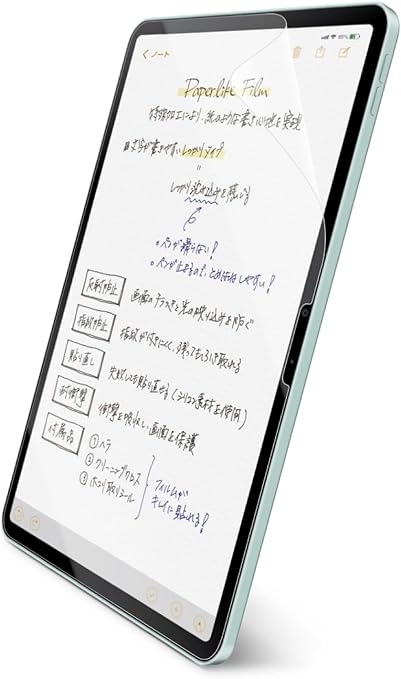 ノート
85%
Paperlike Film
特殊加工により、紙のような書き心地を実現
■文字が書きやすいしっかりタイプ
=
しっかり沈み込みを感じる
○ペンが滑らない!
○ペンが止まるので、とめはねしやすい!
反射防止 画面のチラつきと光の映り込みを防ぐ
指紋防止 指紋が付きにくく、残ってもふき取れる
貼り直し 失敗しても貼り直せる(シリコン素材を使用)
耐衝撃 衝撃を吸収し画面を保護
付属品 ①ヘラ
②クリーニングクロス
③ホコリ取りシール
フィルムが
キレイに貼れる!